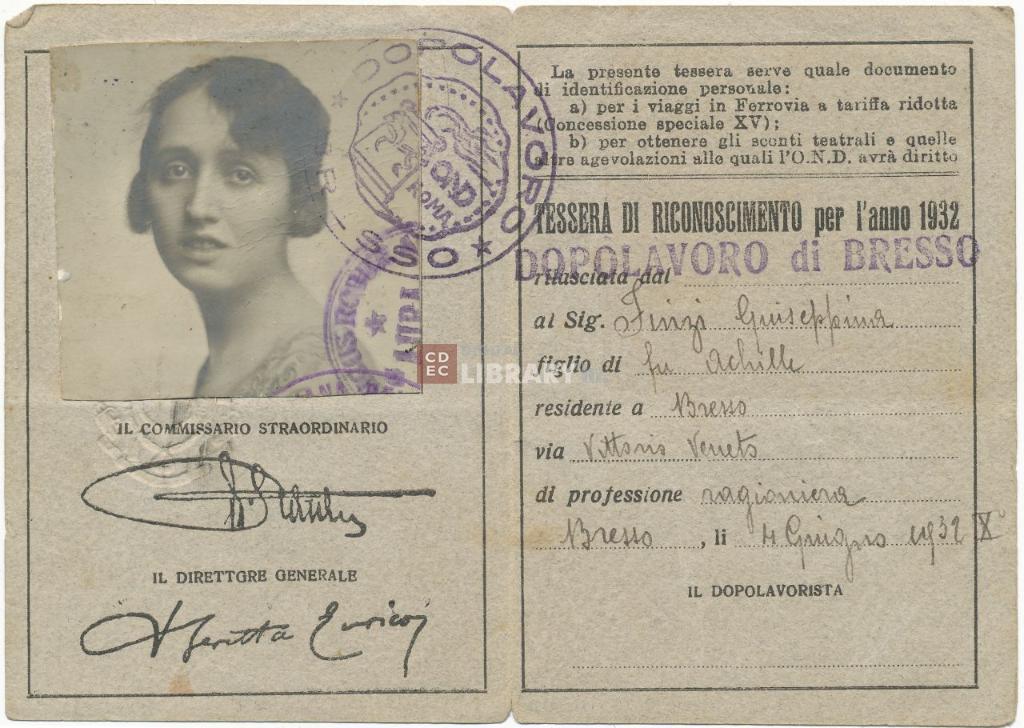 DOPOLAVORO
BRESSO
OND
ROMA
CDEC
DIGITAL
LIBRARY
IL COMMISSARIO STRAORDINARIO
IL DIRETTORE GENERALE
Beretta Enrico
La presente tessera serve quale documento
di identificazione personale:
a) per i viaggi in Ferrovia a tariffa ridotta
(Concessione speciale XV);
b) per ottenere gli sconti teatrali e quelle
altre agevolazioni alle quali l'O.N.D. avrà diritto
TESSERA DI RICONOSCIMENTO per l'anno 1932
DOPOLAVORO di BRESSO
rilasciata dal
al Sig. Finzi Guiseppina
figlio di fu Achille
residente a Bresso
via Vittorio Veneto
di professione ragioniera
Bresso, li 4 Giugno 1932 X°
IL DOPOLAVORISTA